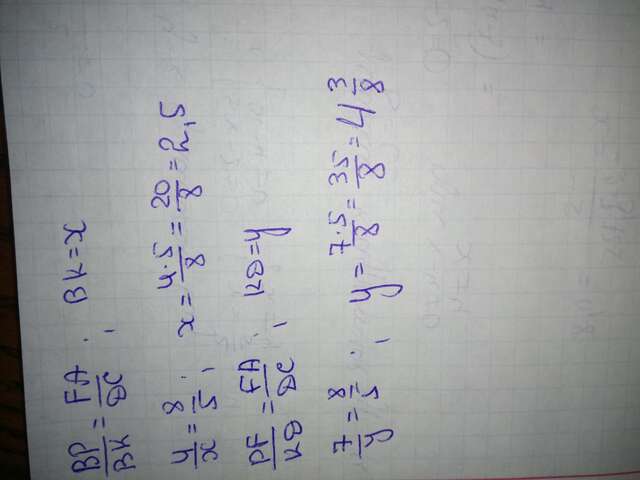 BP/BK = FA/DC ; BK = x
4/x = 8/5 ; x = 4·5/8 = 20/8 = 2,5
PF/KD = FA/DC ; KD = y
7/y = 8/5 ; y = 7·5/8 = 35/8 = 4 3/8